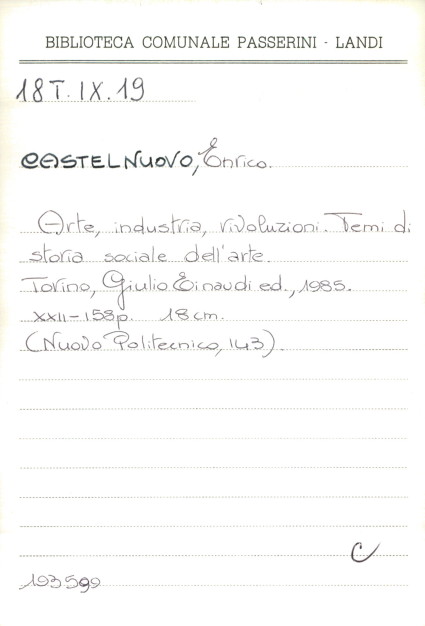 BIBLIOTECA COMUNALE PASSERINI - LANDI
18 T. IX. 19
CASTELNUOVO, Enrico.
Arte, industria, rivoluzioni. Temi di
storia sociale dell'arte.
Torino, Giulio Einaudi ed., 1985.
XXII-158p. 18 cm.
(Nuovo Politecnico, 143).
C
193599